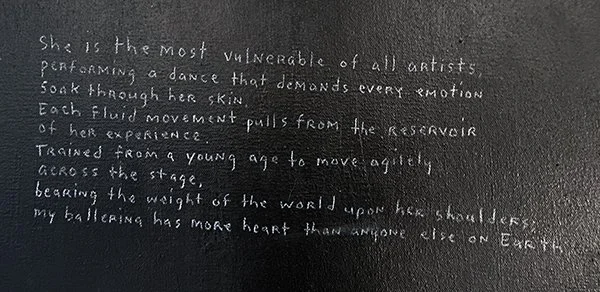 She is the most vulnerable of all artists,
performing a dance that demands every emotion
soak through her skin.
Each fluid movement pulls from the reservoir
of her experience.
Trained from a young age to move agilely
across the stage,
bearing the weight of the world upon her shoulders;
my ballerina has more heart than anyone else on Earth